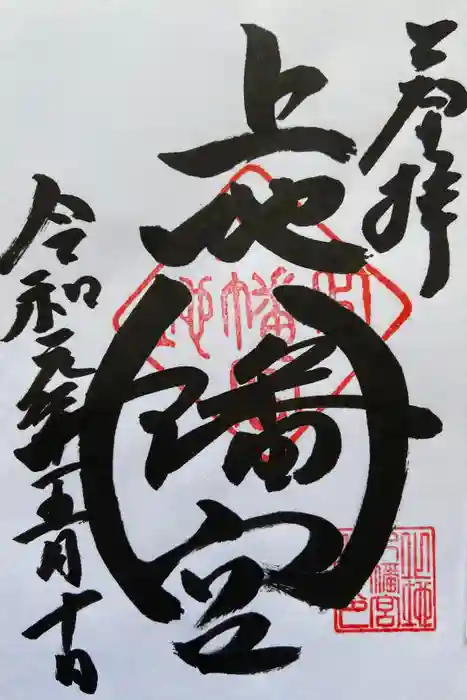 奉拝
上地八幡宮
令和元年五月十日
上地
八幡宮